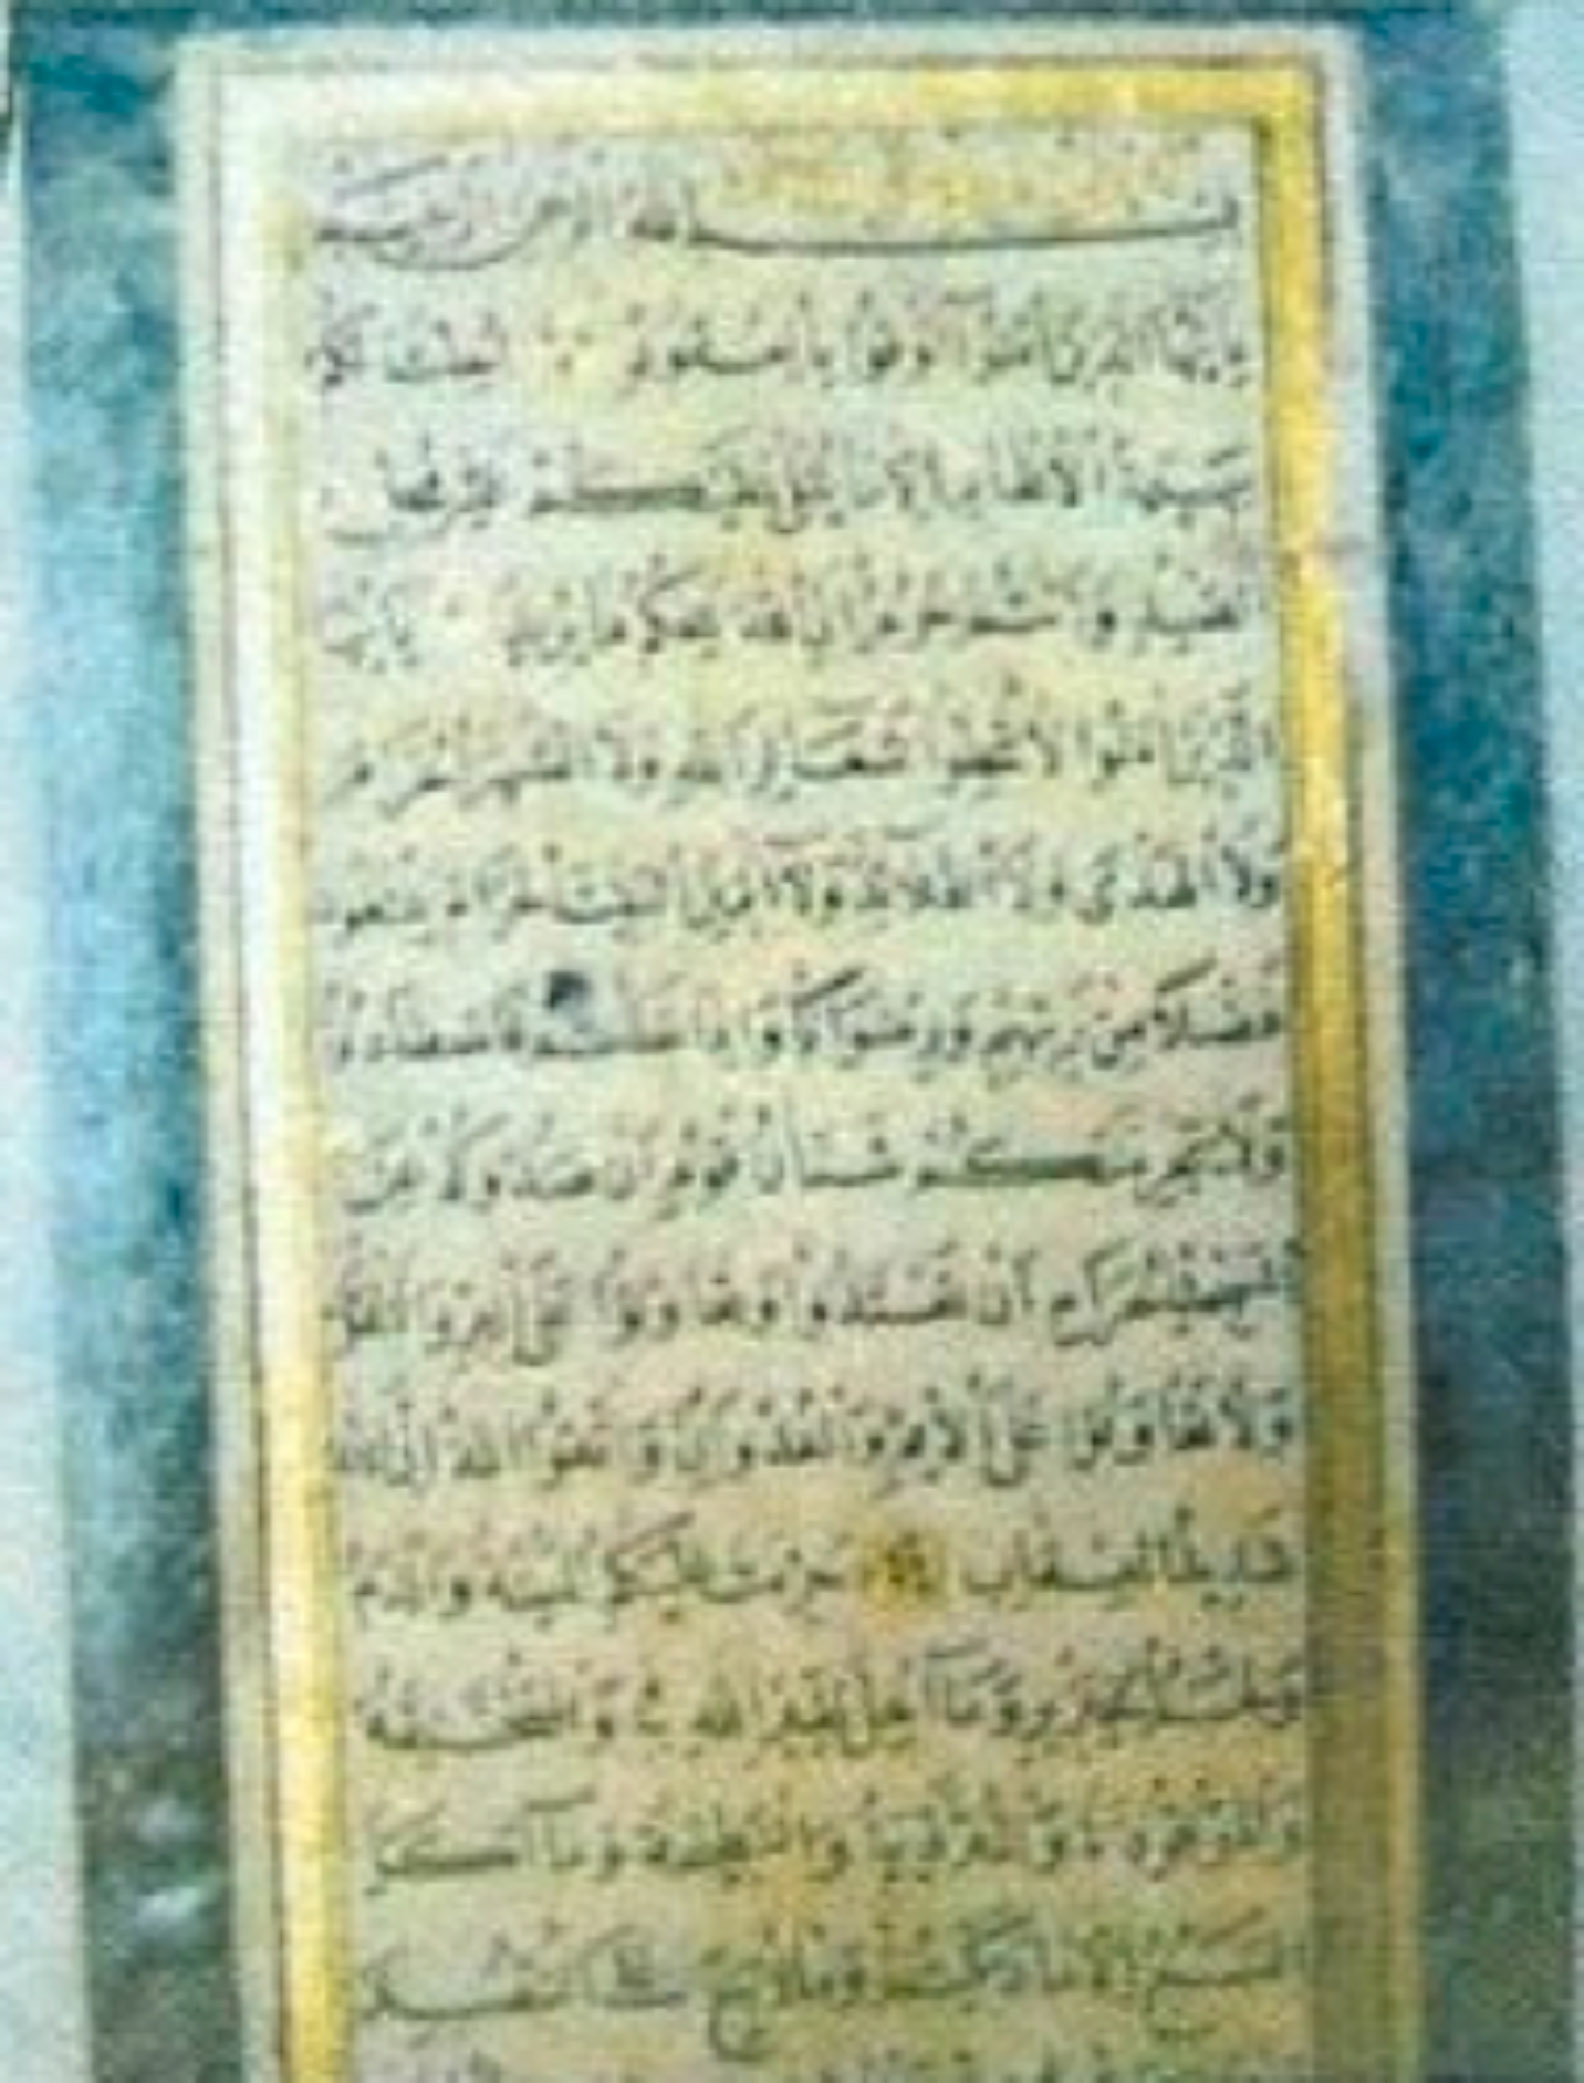 بِسْمِ اللَّهِ الرَّحْمَٰنِ الرَّحِيمِ
يَا أَيُّهَا الَّذِينَ آمَنُوا أَوْفُوا بِالْعُقُودِ أُحِلَّتْ لَكُمْ
بَهِيمَةُ الْأَنْعَامِ إِلَّا مَا يُتْلَىٰ عَلَيْكُمْ غَيْرَ مُحِلِّي
الصَّيْدِ وَأَنْتُمْ حُرُمٌ إِنَّ اللَّهَ يَحْكُمُ مَا يُرِيدُ يَا أَيُّهَا
الَّذِينَ آمَنُوا لَا تُحِلُّوا شَعَائِرَ اللَّهِ وَلَا الشَّهْرَ الْحَرَامَ
وَلَا الْهَدْيَ وَلَا الْقَلَائِدَ وَلَا آمِّينَ الْبَيْتَ الْحَرَامَ يَبْتَغُونَ
فَضْلًا مِنْ رَبِّهِمْ وَرِضْوَانًا وَإِذَا حَلَلْتُمْ فَاصْطَادُوا
وَلَا يَجْرِمَنَّكُمْ شَنَآنُ قَوْمٍ أَنْ صَدُّوكُمْ عَنِ
الْمَسْجِدِ الْحَرَامِ أَنْ تَعْتَدُوا وَتَعَاوَنُوا عَلَى الْبِرِّ وَالتَّقْوَىٰ
وَلَا تَعَاوَنُوا عَلَى الْإِثْمِ وَالْعُدْوَانِ وَاتَّقُوا اللَّهَ إِنَّ اللَّهَ
شَدِيدُ الْعِقَابِ حُرِّمَتْ عَلَيْكُمُ الْمَيْتَةُ وَالدَّمُ
وَلَحْمُ الْخِنْزِيرِ وَمَا أُهِلَّ لِغَيْرِ اللَّهِ بِهِ وَالْمُنْخَنِقَةُ
وَالْمَوْقُوذَةُ وَالْمُتَرَدِّيَةُ وَالنَّطِيحَةُ وَمَا أَكَلَ
السَّبُعُ إِلَّا مَا ذَكَّيْتُمْ وَمَا ذُبِحَ عَلَى النُّصُبِ